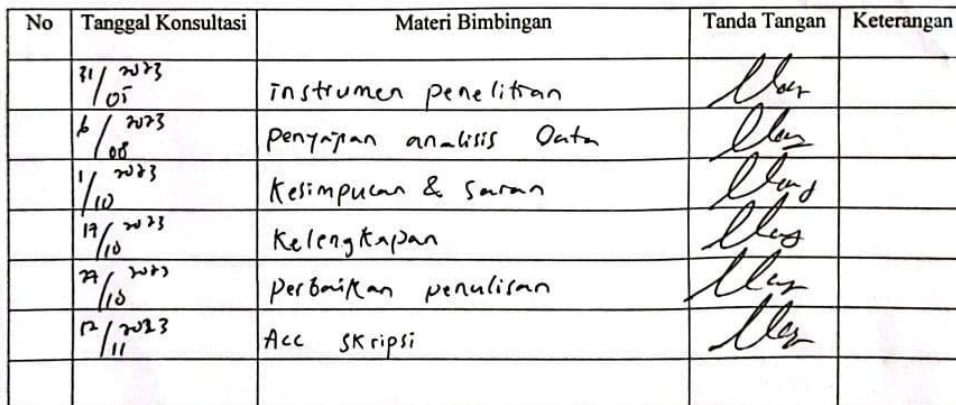 No Tanggal Konsultasi Materi Bimbingan Tanda Tangan Keterangan
31/05 2023 instrumen penelitian
6/08 2023 penyajian analisis Data
1/10 2023 Kesimpulan & Saran
17/10 2023 Kelengkapan
27/10 2023 perbaikan penulisan
12/11 2023 Acc skripsi